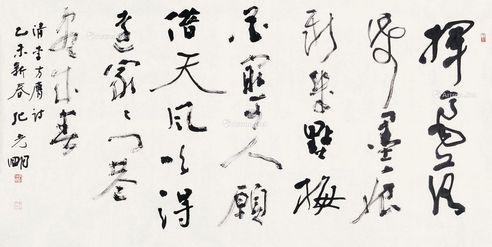 揮毫落
紙墨痕
新幾點梅
花最可人願
借天风吹得
遠家〻门巷
盡成春
清李方膺诗
乙未新春纪光明